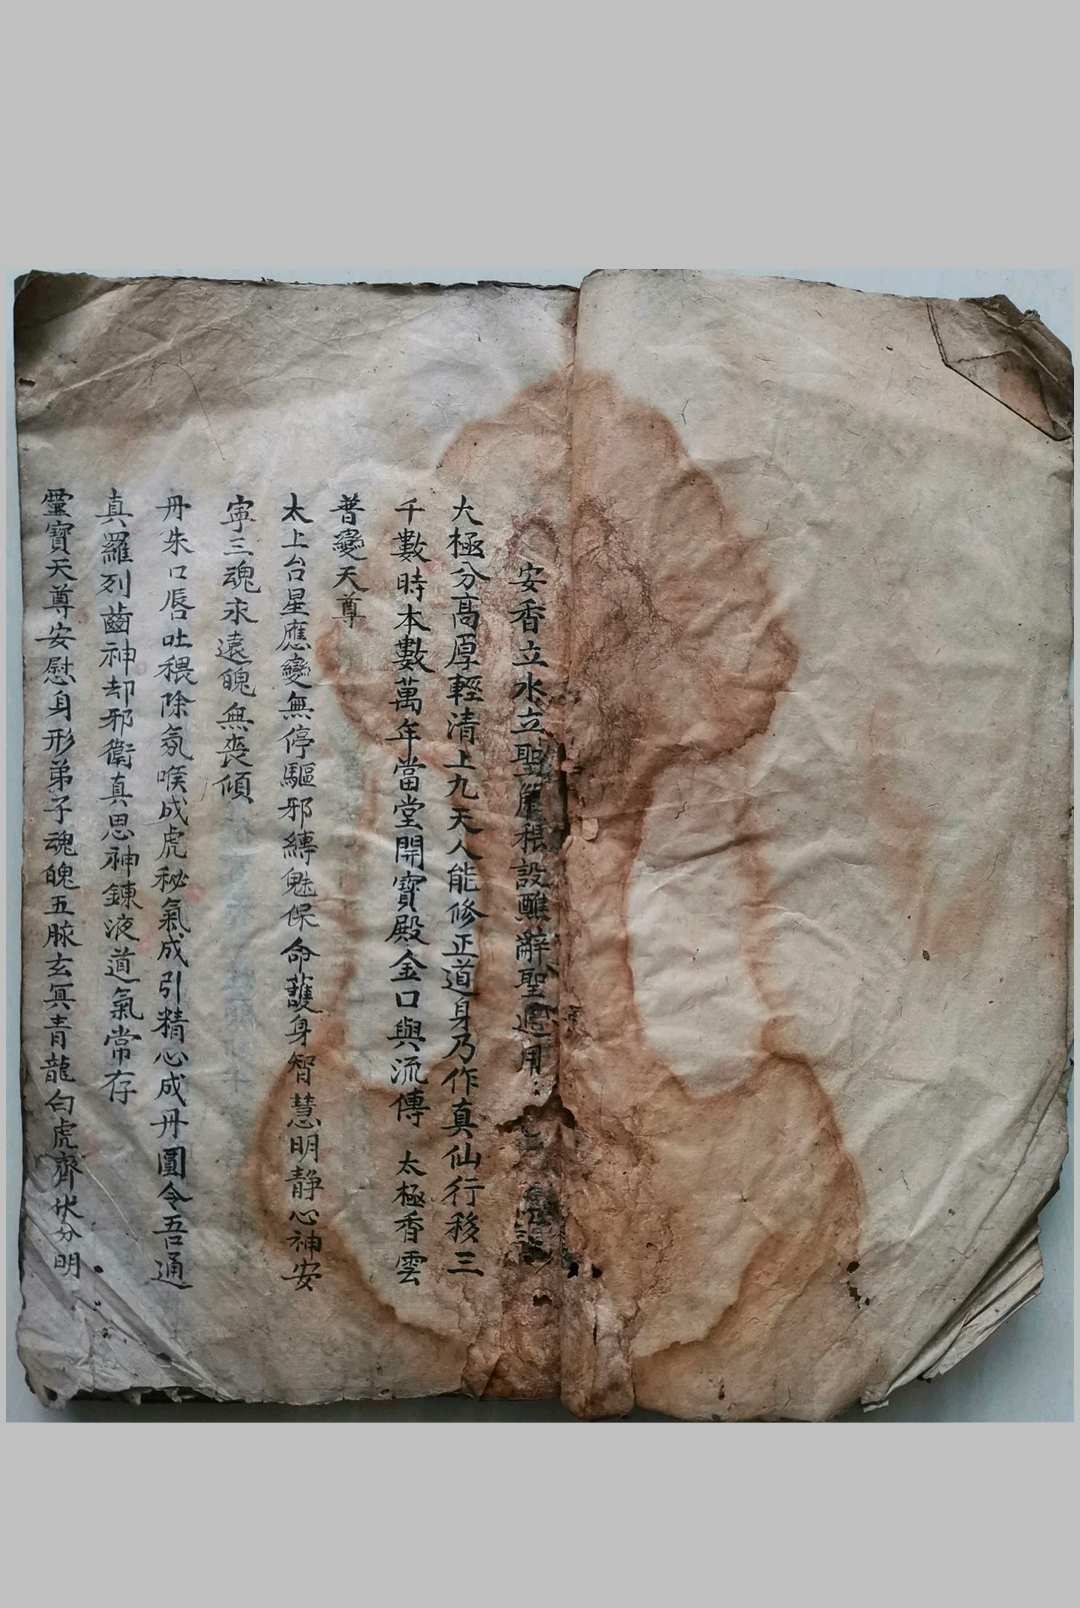 安香立水立聖 穢設醮辭聖 用
大極分高厚輕清上九天人能修正道身乃作真仙行移三
千數時本數萬年當堂開寶殿金口與流傳 太極香雲
普變天尊
太上台星應變無停驅邪縛魅保命護身智慧明靜心神安
寧三魂永遠魄無喪傾
丹朱口唇吐穢除氛喉成虎秘氣成引精心成丹圓令吾通
真羅列齒神却邪衛真思神鍊液道氣常存
靈寶天尊安慰身形弟子魂魄五脉玄冥青龍白虎齊伏分明